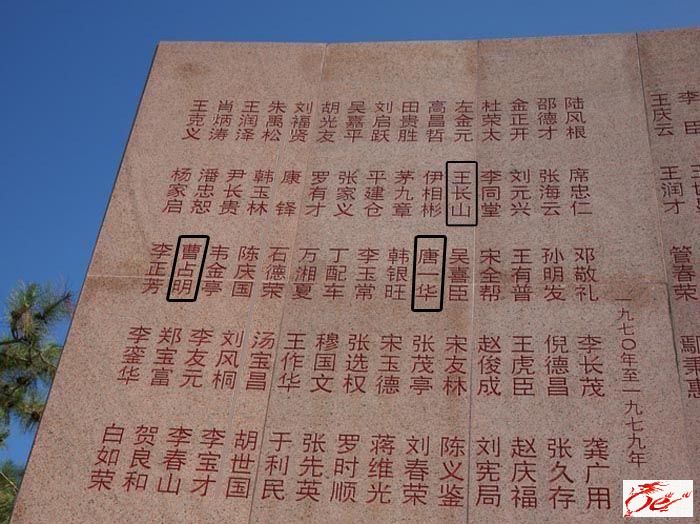 王庆云
王润才
管春荣
一九七〇年至一九七九年
陆风根
邵德才
金正开
杜荣太
左金元
高昌哲
田贵胜
刘启跃
吴嘉平
胡光友
刘福贤
朱禹松
王润泽
肖炳涛
王克义
席忠仁
张海云
刘元兴
李同堂
王长山
伊相彬
茅九章
平建仓
张家义
罗有才
康铎
韩玉林
尹长贵
潘忠恕
杨家启
邓敬礼
孙明发
王有普
宋全帮
吴喜臣
唐一华
韩银旺
李玉常
丁配车
万湘夏
石德荣
陈庆国
韦金亭
曹占明
李正芳
李长茂
倪德昌
王虎臣
赵俊成
宋友林
张茂亭
宋玉德
张选权
穆国文
王作华
汤宝昌
刘风桐
李友元
郑宝富
李銮华
龚广用
张久存
赵庆福
刘宪局
陈义鉴
刘春荣
蒋维光
罗时顺
张先英
于利民
胡世国
李宝才
李春山
贺良和
白如荣